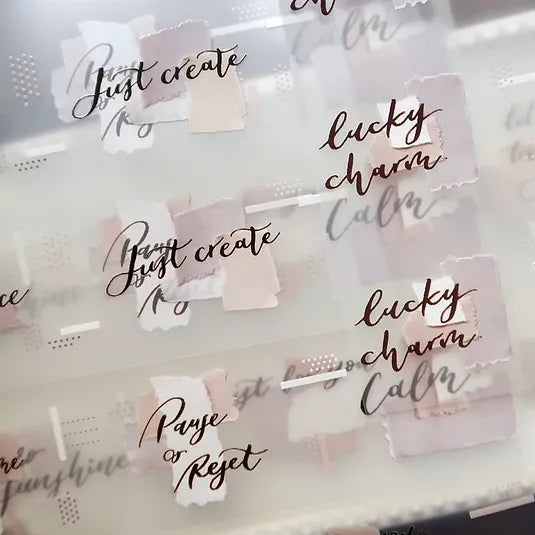 Calm
Just create
lucky
charm
Calm
Just create
lucky
charm
Calm
Pause
or
Reset
sunshine